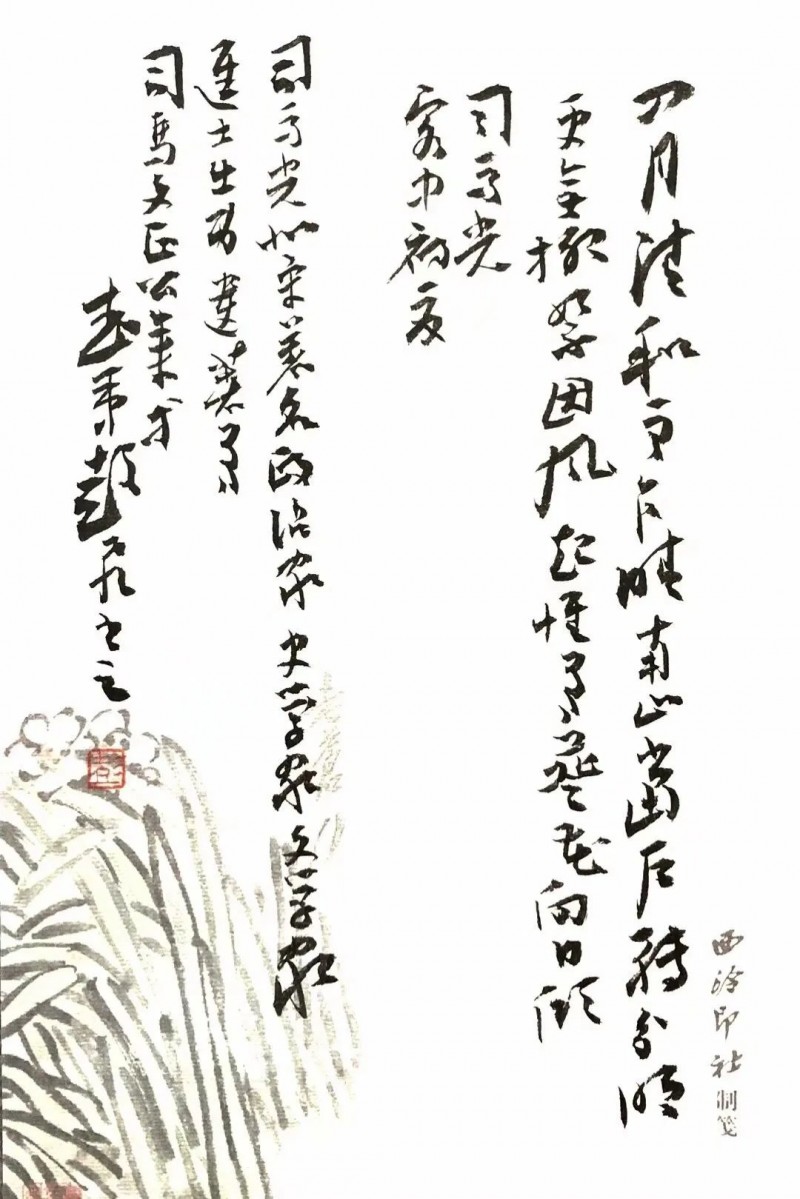 四月清和雨乍晴南山當户轉分明
更無柳絮因風起惟有葵花向日傾
司马光
客中初夏
司马光北宋著名政治家史学家文学家
進士出身遺著有
司馬文正公集等
書之
西泠印社制笺